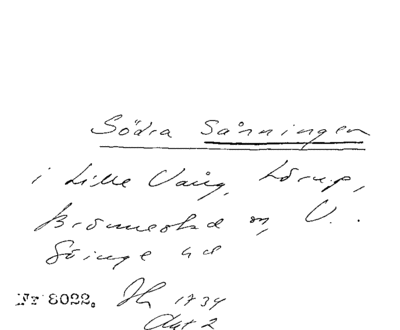 Södra Sånningen
i Lille Vång, Lörup,
Brönnestad sn, V.
Göinge hd
Nr 8022. Jh 1734
Akt 2